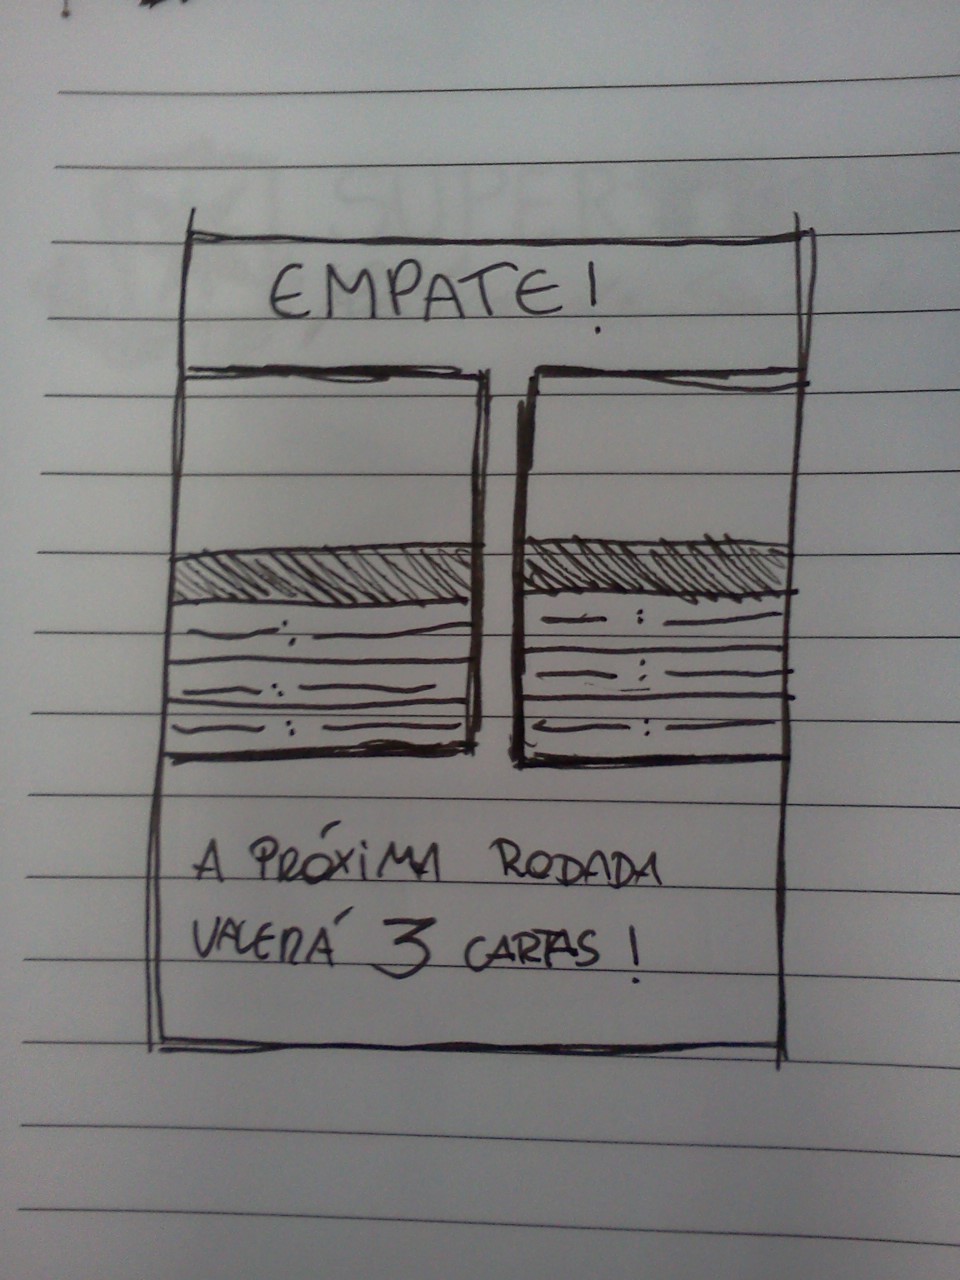 EMPATE!
A PRÓXIMA RODADA
VALERÁ 3 CARTAS!